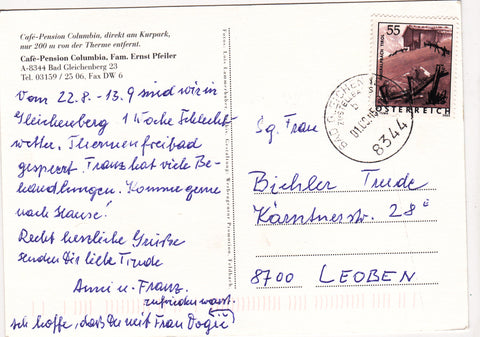 Café-Pension Columbia, direkt am Kurpark,
nur 200 m von der Therme entfernt.
Café-Pension Columbia, Fam. Ernst Pfeiler
A-8344 Bad Gleichenberg 23
Tel. 03159 / 25 06, Fax DW 6
Vom 22.8. - 13.9 sind wir in
Gleichenberg 1 Woche Schlecht-
wetter. Thermenfreibad
gesperrt. Franz hat viele Be-
handlungen. Komme gerne
nach Hause!
Recht herzliche Grüße
senden Dir liebe Trude
Anni u. Franz.
zufrieden warst.
Ich hoffe, daß Du mit Frau
55
ÖSTERREICH
8344
Sg. Frau
Bichler Trude
Kärntnerstr. 28
8700 LEOBEN